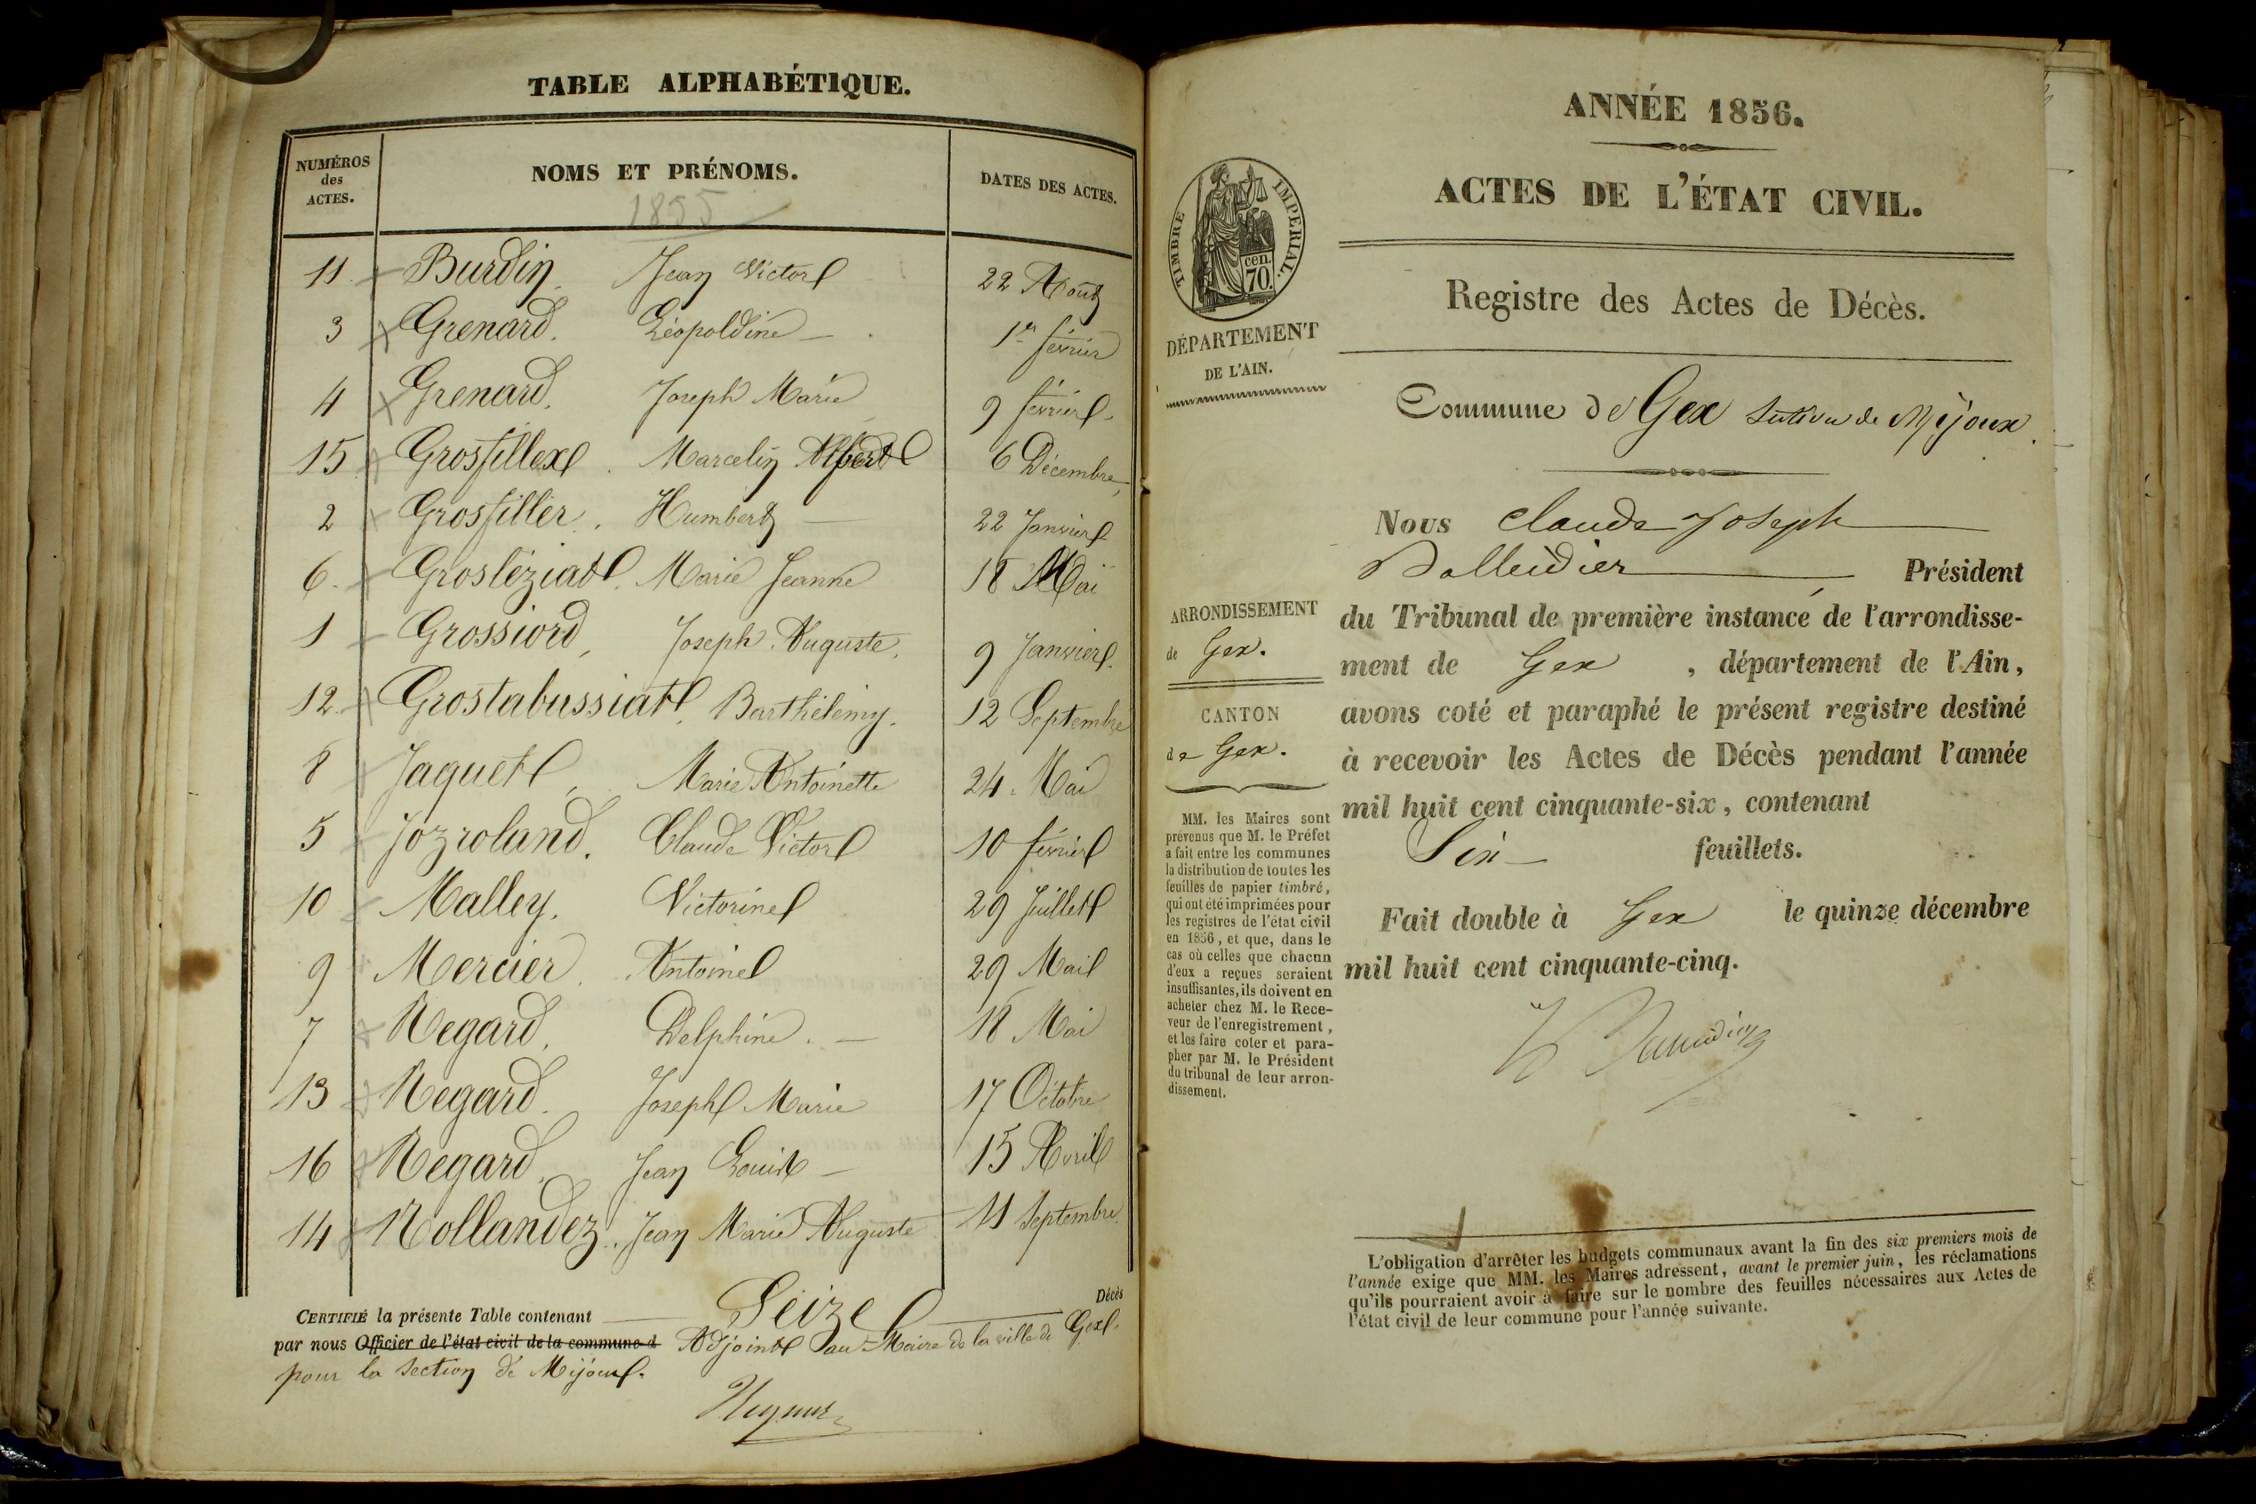 TABLE ALPHABÉTIQUE.
NUMÉROS des ACTES.
NOMS ET PRÉNOMS.
DATES DES ACTES.
1855
11 Burdin. Jean Victor 22 Août
3 Grenard. Léopoldine 1er février
4 Grenard. Joseph Marie 9 février
15 Grosfillex. Marcelin Albert 6 Décembre
2 Grosfiller. Humbert 22 Janvier
6. Grosléziat. Marie Jeanne 18 Mai
1 Grossiord, Joseph Auguste. 9 Janvier.
12. Grostabussiat. Barthélemy. 12 Septembre
8 Jaquet, Marie Antoinette 24 Mai
5 Jozroland. Claude Victor 10 février
10 Malley. Victorine 29 Juillet
9 Mercier. Antoine 29 Mai
7 Regard. Delphine. 18 Mai
13 Regard. Joseph Marie 17 Octobre
16 Regard. Jean Louis 15 Avril
14 Rollandez. Jean Marie Auguste 11 Septembre
CERTIFIÉ la présente Table contenant Seize Décès
par nous Officier de l'état civil de la commune d Adjoint au Maire de la ville de Gex.
pour la section de Mijoux.
ANNÉE 1856.
ACTES DE L'ÉTAT CIVIL.
Registre des Actes de Décès.
TIMBRE IMPERIAL.
cen.
70.
DÉPARTEMENT
DE L'AIN.
Commune de Gex Section de Mijoux.
ARRONDISSEMENT
de Gex.
CANTON
de Gex.
MM. les Maires sont
prévenus que M. le Préfet
a fait entre les communes
la distribution de toutes les
feuilles de papier timbré,
qui ont été imprimées pour
les registres de l'état civil
en 1856, et que, dans le
cas où celles que chacun
d'eux a reçues seraient
insuffisantes, ils doivent en
acheter chez M. le Rece-
veur de l'enregistrement,
et les faire coter et para-
pher par M. le Président
du tribunal de leur arron-
dissement.
Nous Claude Joseph
Balleidier Président
du Tribunal de première instance de l'arrondisse-
ment de Gex, département de l'Ain,
avons coté et paraphé le présent registre destiné
à recevoir les Actes de Décès pendant l'année
mil huit cent cinquante-six, contenant
Six feuillets.
Fait double à Gex le quinze décembre
mil huit cent cinquante-cinq.
L'obligation d'arrêter les budgets communaux avant la fin des six premiers mois de
l'année exige que MM. les Maires adressent, avant le premier juin, les réclamations
qu'ils pourraient avoir à faire sur le nombre des feuilles nécessaires aux Actes de
l'état civil de leur commune pour l'année suivante.